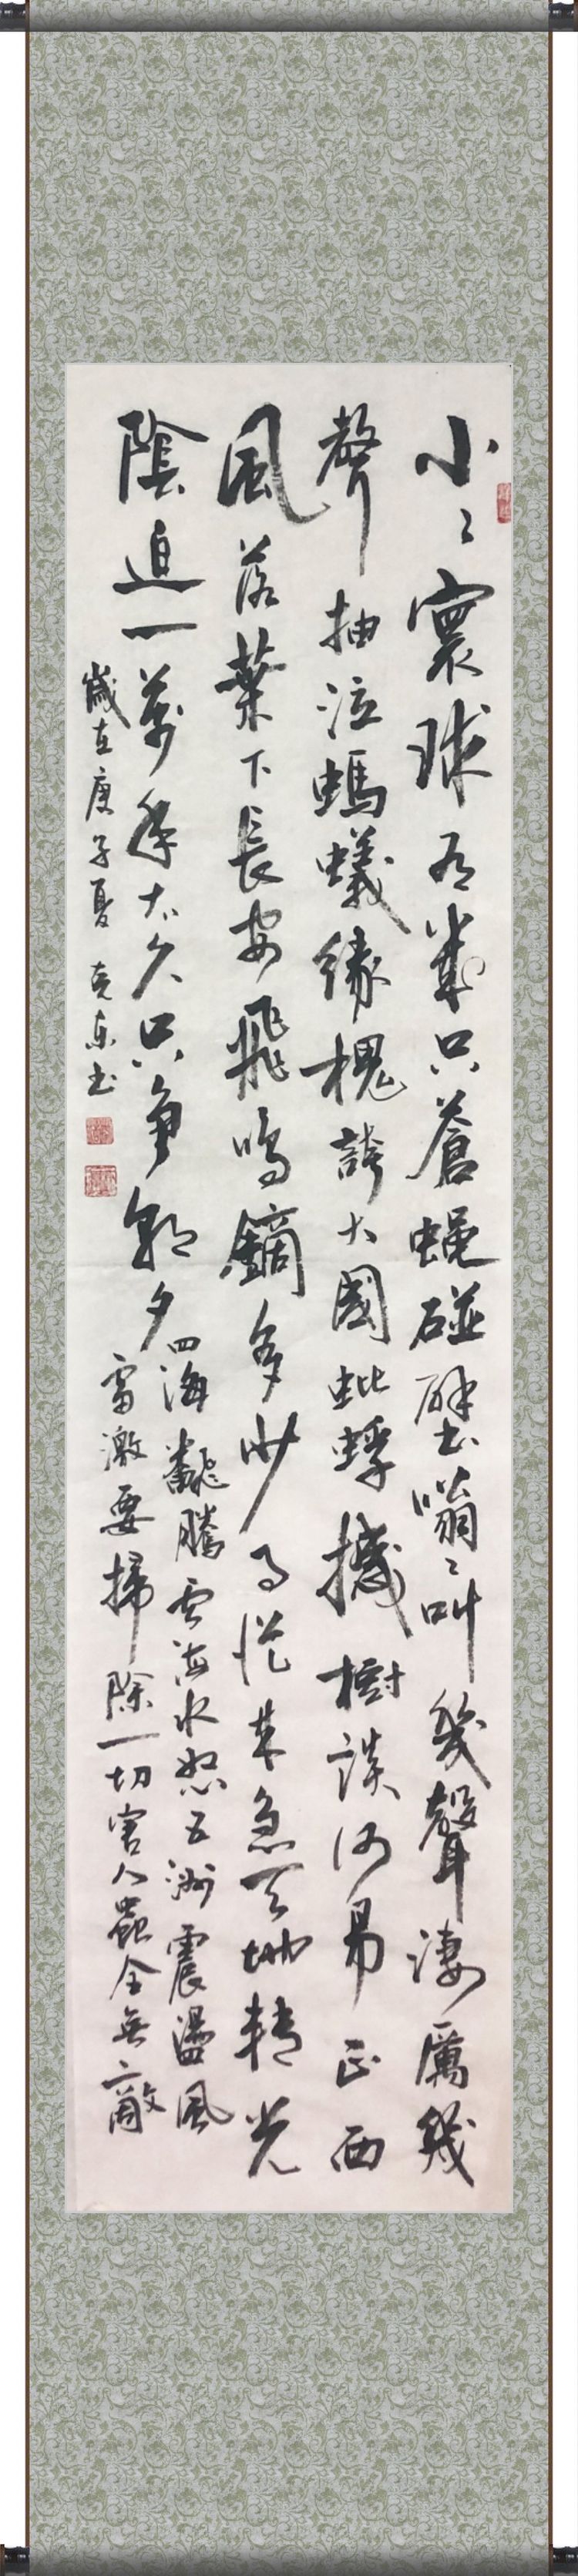 小〻寰球有幾只蒼蠅碰壁嗡〻叫幾聲淒厲幾
聲抽泣螞蟻緣槐誇大國蚍蜉撼樹談何易正西
風落葉下長安飛鳴鏑多少事從來急天地轉光
陰迫一萬年太久只爭朝夕
四海飜騰雲海水怒五洲震盪風
雷激要掃除一切害人蟲全無敵
歲在庚子夏 克東书